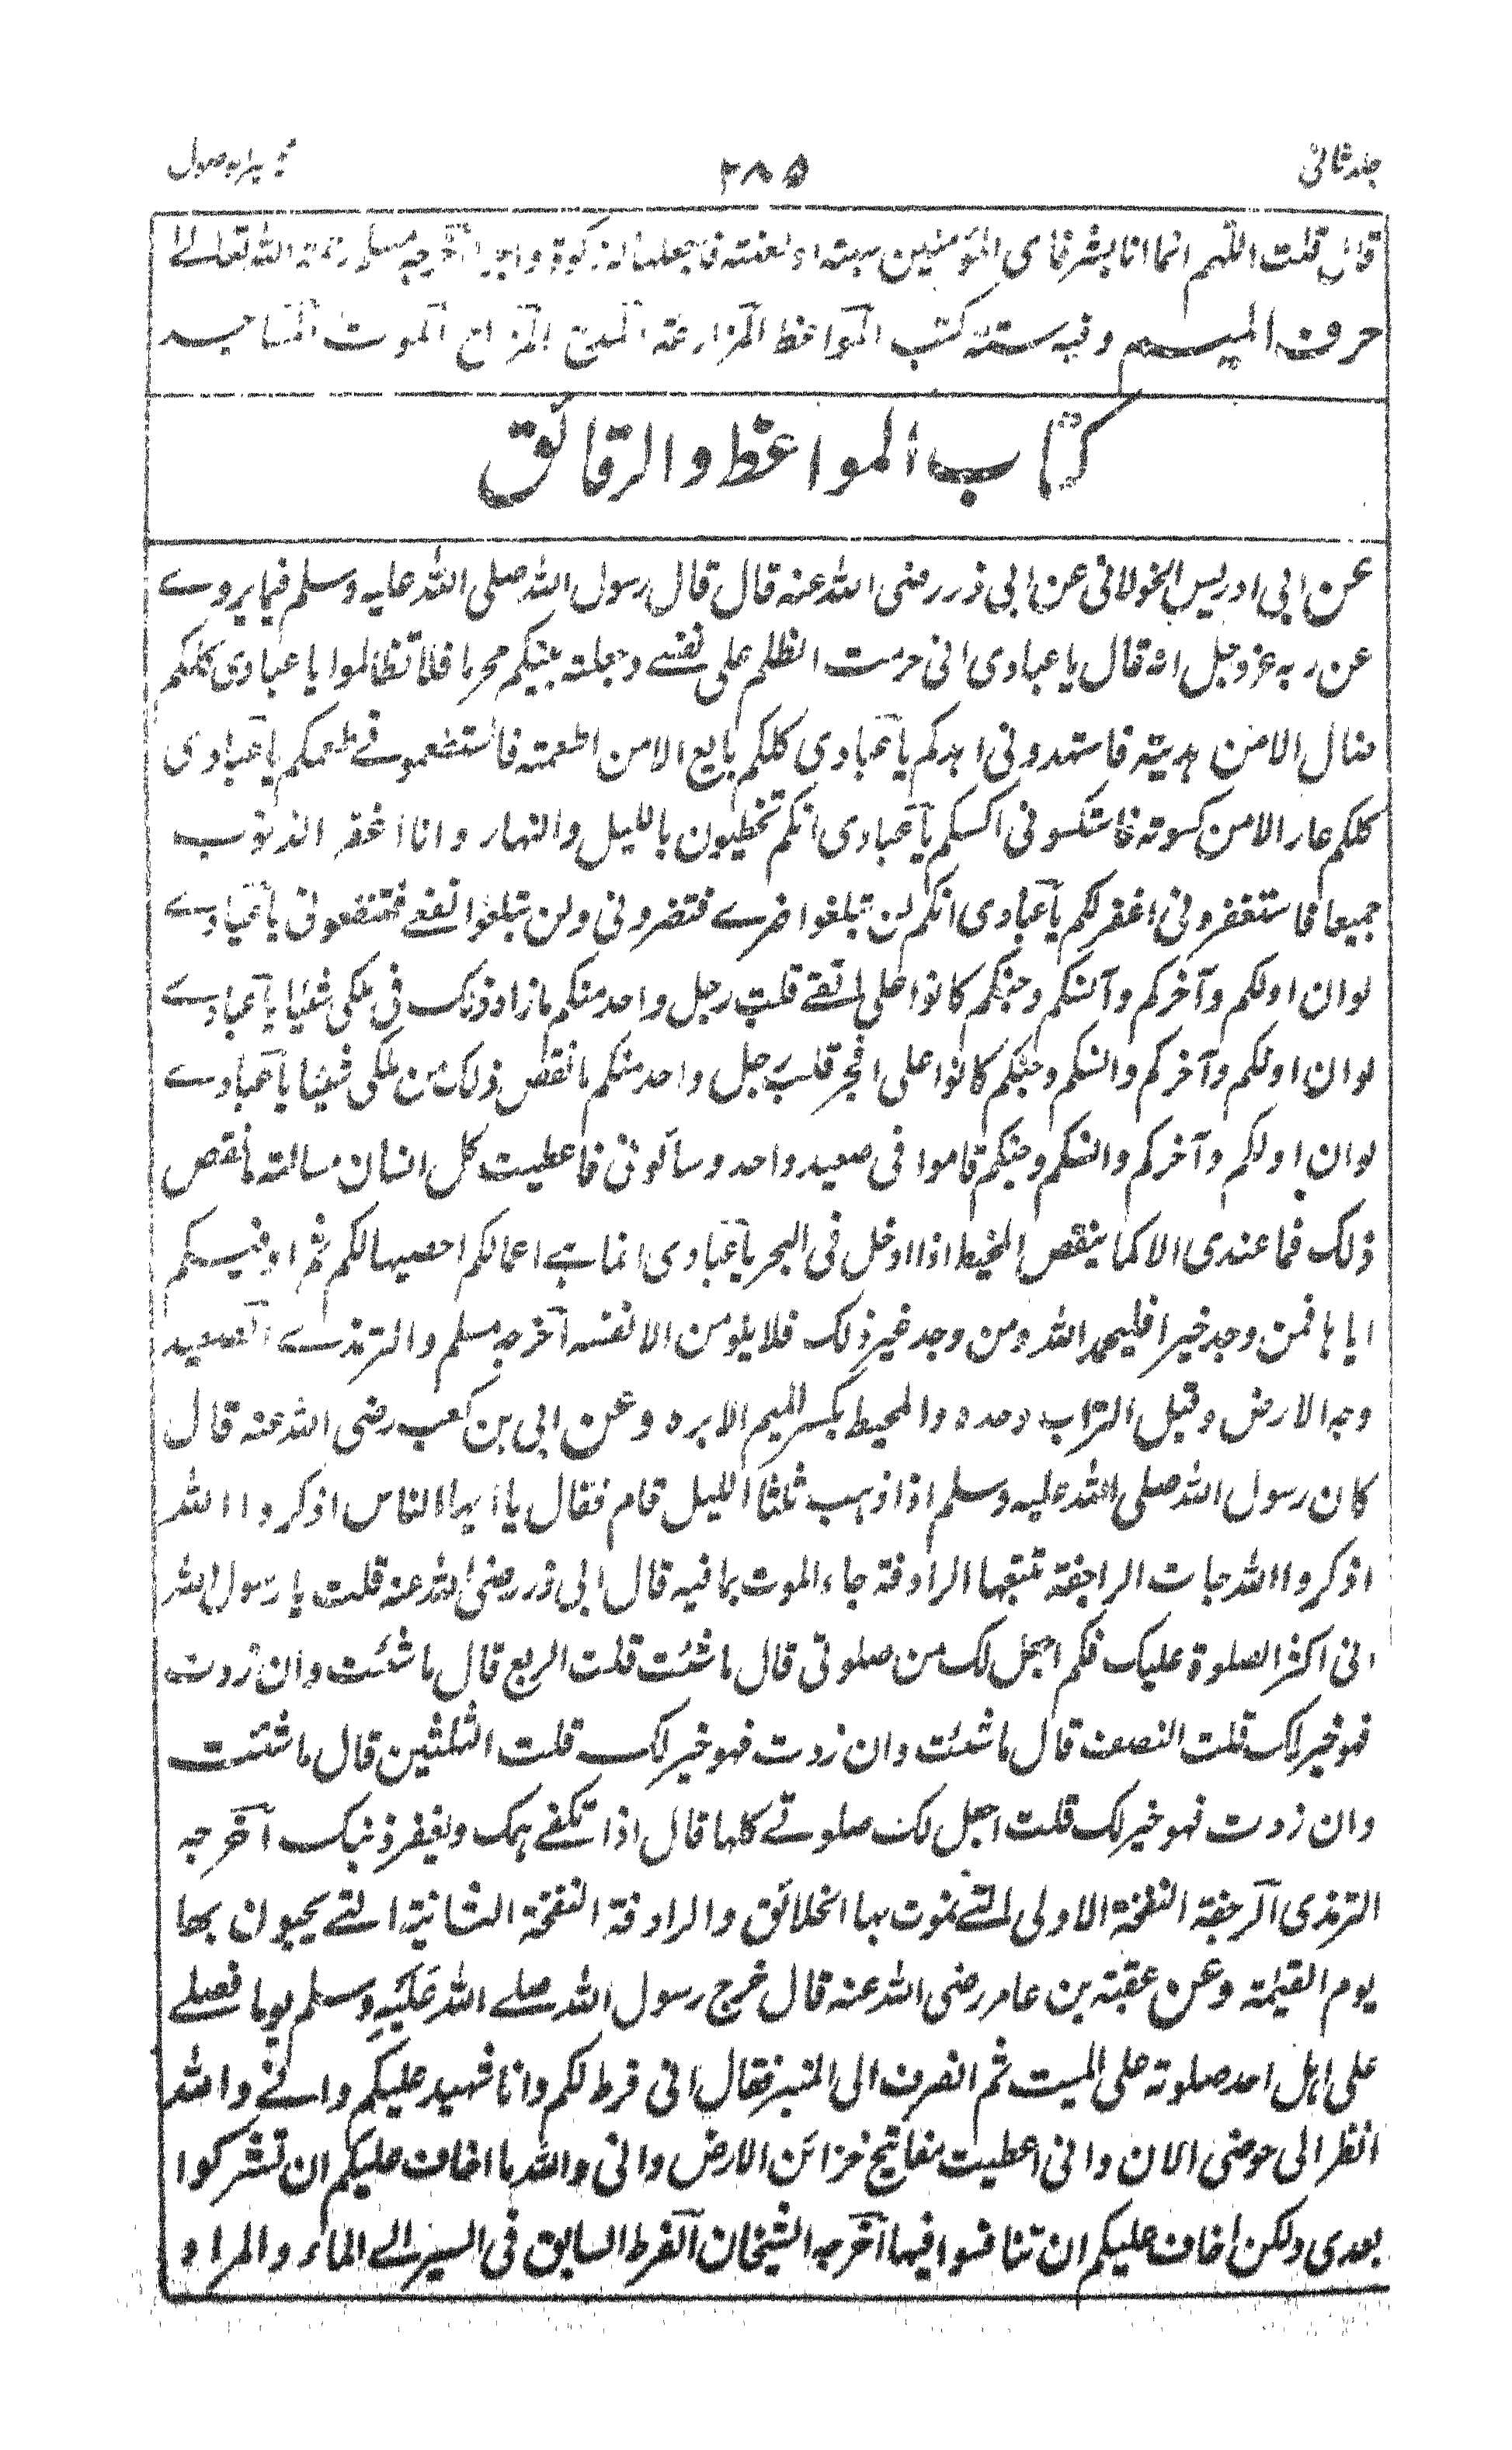 جلد ثانی ۲۸۵
قال قلت اللهم انما انا بشر فای المؤمنین سببته او لعنته فاجعلها له زکوة واجرا اخرجه مسلم رحمه الله تعالے
حرف المیم وفیه ستة کتب المواعظ المزارعة المدح المزاح الموت المساجد
کتاب المواعظ والرقائق
عن ابی ادریس الخولانی عن ابی ذر رضی الله عنه قال قال رسول الله صلی الله علیه وسلم فیما یروے
عن ربه عز وجل انه قال یا عبادی انی حرمت الظلم علی نفسے وجعلته بینکم محرما فلا تظالموا یا عبادی کلکم
ضال الا من هدیته فاستهدونی اهدکم یا عبادی کلکم جایع الا من اطعمته فاستطعمونے اطعمکم یا عبادی
کلکم عار الا من کسوته فاستکسونی اکسکم یا عبادی انکم تخطیون باللیل والنهار وانا اغفر الذنوب
جمیعا فاستغفرونی اغفر لکم یا عبادی انکم لن تبلغوا ضرے فتضرونی ولن تبلغوا نفعے فتنفعونی یا عبادے
لو ان اولکم وآخرکم وآنسکم وجنکم کانوا علی اتقے قلب رجل واحد منکم ما زاد ذلک فی ملکی شئیا یا عبادے
لو ان اولکم وآخرکم وانسکم وجنکم کانوا علی افجر قلب رجل واحد منکم ما نقص ذلک من ملکی شیئا یا عبادے
لو ان اولکم وآخرکم وانسکم وجنکم قاموا فی صعید واحد وسألونی فاعطیت کل انسان مسالته ما نقص
ذلک مما عندی الا کما ینقص المخیط اذا ادخل فی البحر یا عبادی انما هے اعمالکم احصیها لکم ثم اوفیکم
ایاها فمن وجد خیرا فلیحمد الله ومن وجد غیر ذلک فلا یلومن الا نفسه اخرجه مسلم والترمذے الصعید
وجه الارض وقیل التراب وحده والمخیط بکسر المیم الابره وعن ابی بن کعب رضی الله عنه قال
کان رسول الله صلی الله علیه وسلم اذا ذهب ثلثا اللیل قام فقال یا ایها الناس اذکروا الله
اذکروا الله جات الراجفة تتبعها الرادفة جاء الموت بما فیه قال ابی ذر رضی الله عنه قلت یا رسول الله
انی اکثر الصلوة علیک فکم اجعل لک من صلوتی قال ما شئت قلت الربع قال ما شئت وان زدت
فهو خیر لک قلت النصف قال ما شئت وان زدت فهو خیر لک قلت الثلثین قال ما شئت
وان زدت فهو خیر لک قلت اجعل لک صلوتے کلها قال اذا تکفے همک ویغفر ذنبک اخرجه
الترمذی الرجفة النفخة الاولی التے تموت بها الخلائق والرادفة النفخة الثانیة التے یحیون بها
یوم القیمة وعن عقبة بن عامر رضی الله عنه قال خرج رسول الله صلے الله علیه وسلم یوما فصلے
علی اهل احد صلوته علی المیت ثم انصرف الی المنبر فقال انی فرط لکم وانا شهید علیکم وانے والله
انظر الی حوضی الان وانی اعطیت مفاتیح خزائن الارض وانی والله ما اخاف علیکم ان تشرکوا
بعدی ولکن اخاف علیکم ان تنافسوا فیها اخرجه الشیخان الفرط السابق فی السیر الے الماء والمراد